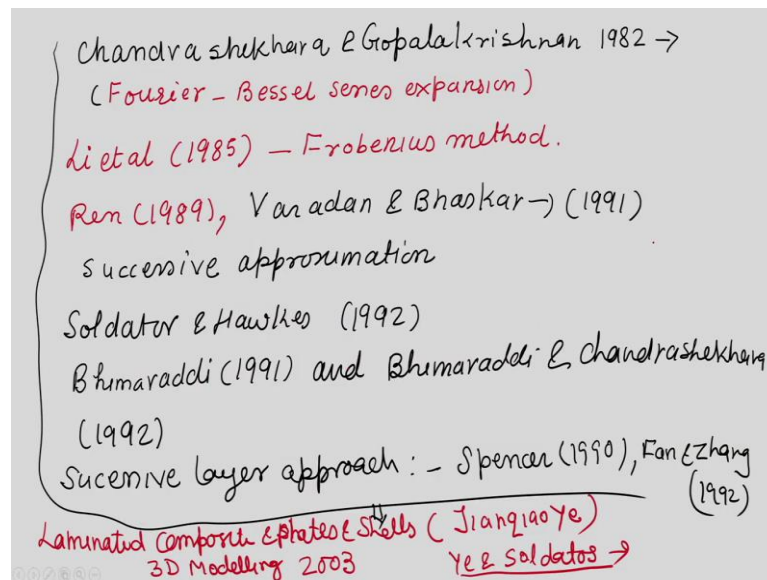 Chandrashekhara & Gopalakrishnan 1982 →
(Fourier - Bessel series expansion)
Li et al (1985) - Frobenius method.
Ren (1989), Varadan & Bhaskar → (1991)
successive approximation
Soldator & Hawkes (1992)
Bhimaraddi (1991) and Bhimaraddi & Chandrashekhara
(1992)
Sucessive layer approach : - Spencer (1990), Fan & Zhang
(1992)
Laminated Composite & Plates & Shells (Jianqiao Ye)
3D Modelling 2003 Ye & Soldatos →